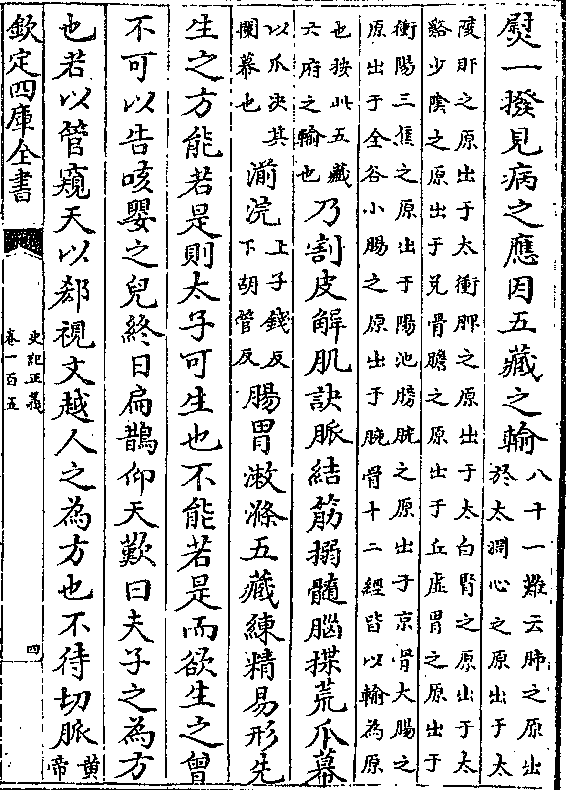 熨一撥見病之應因五藏之輸八十一難云肺之原出
於太淵心之原出于太
陵肝之原出于太衝脾之原出于太白腎之原出于太
谿少隂之原出于兑骨膽之原出于丘虚胃之原出于
衝陽三焦之原出于陽池膀胱之原出于京骨大腸之
原出于全谷小腸之原出于腕骨十二經皆以輸為原
也按此五藏
六府之輸也乃割皮解肌訣脈結筋搦髓腦揲荒爪幕
以爪决其
闌幕也湔浣上子錢反
下胡管反腸胃漱滌五藏練精易形先
生之方能若是則太子可生也不能若是而欲生之曾
不可以告咳嬰之兒終日扁鵲仰天歎曰夫子之為方
也若以管窺天以郄視文越人之為方也不待切脈黄
帝
欽定四庫全書
史記正義
卷一百五
四